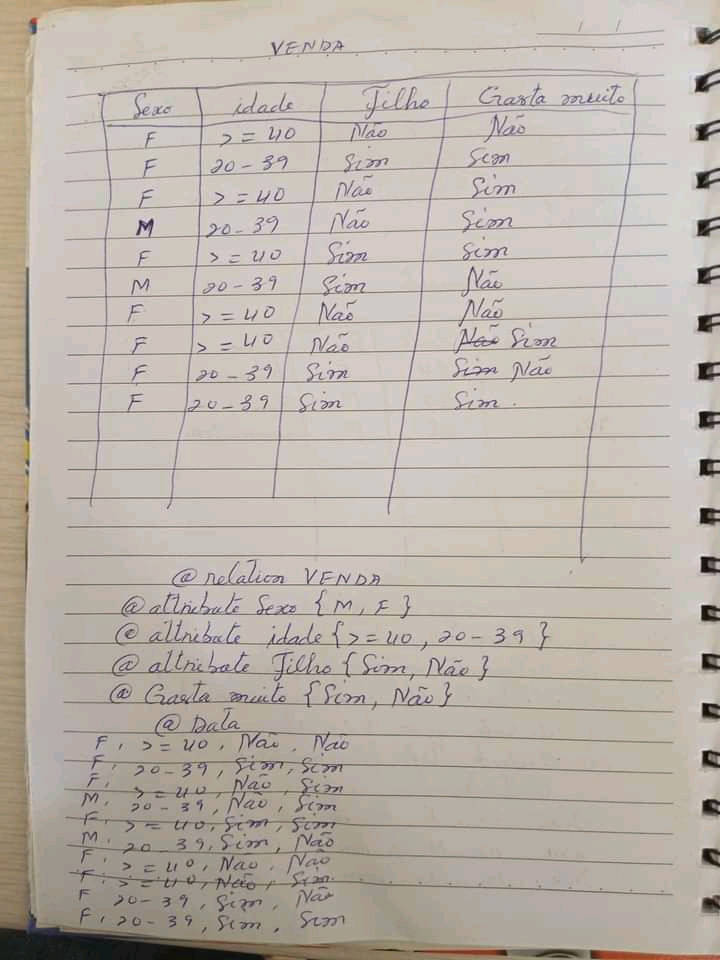 VENDA
Sexo idade Filho Gasta muito
F >= 40 Não Não
F 20-39 Sim Sim
F >= 40 Não Sim
M 20-39 Não Sim
F >= 40 Sim Sim
M 20-39 Sim Não
F >= 40 Não Não
F >= 40 Não Não Sim
F 20-39 Sim Sim Não
F 20-39 Sim Sim.
@ relation VENDA
@ attribute Sexo {M, F}
@ attribute idade {>= 40, 20-39}
@ attribute Filho {Sim, Não}
@ Gasta muito {Sim, Não}
@ Data
F, >= 40, Não, Não
F, 20-39, Sim, Sim
F, >= 40, Não, Sim
M, 20-39, Não, Sim
F, >= 40, Sim, Sim
M, 20-39, Sim, Não
F, >= 40, Não, Não
F, >= 40, Não, Sim
F 20-39, Sim, Não
F, 20-39, Sim, Sim